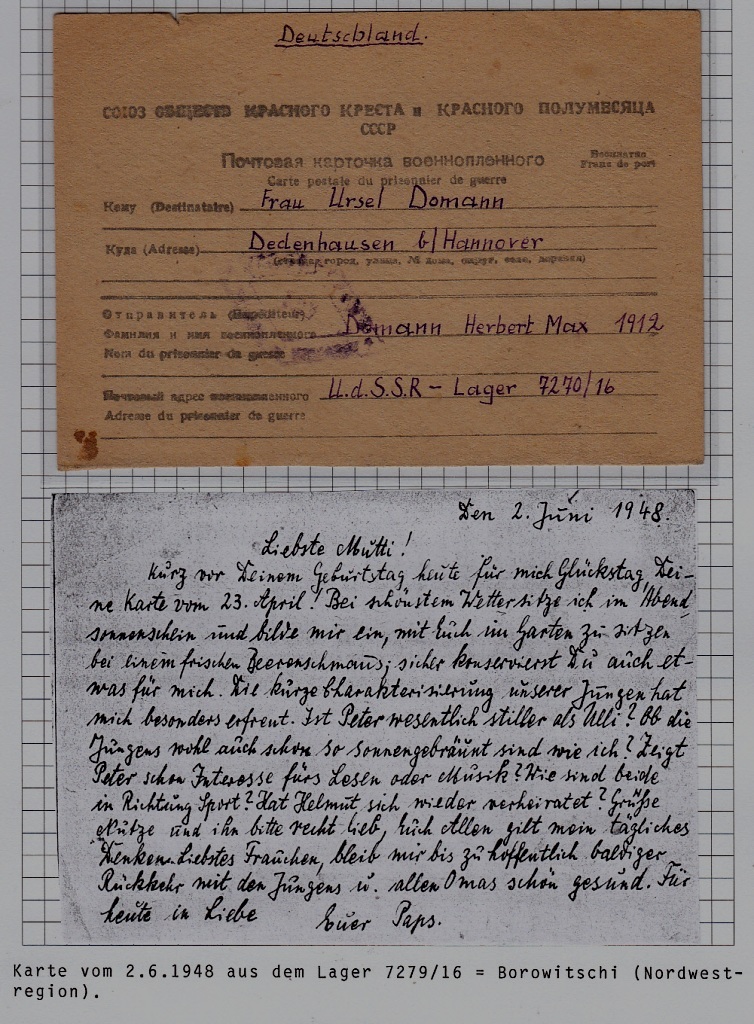 Deutschland.
СОЮЗ ОБЩЕСТВ КРАСНОГО КРЕСТА и КРАСНОГО ПОЛУМЕСЯЦА
СССР
Почтовая карточка военнопленного
Бесплатно
Franc de port
Carte postale du prisonnier de guerre
Кому (Destinataire) Frau Ursel Domann
Куда (Adresse) Dedenhausen b/Hannover
(страна, город, улица, № дома, округ, село, деревня)
Отправитель (Expéditeur)
Фамилия и имя военнопленного Domann Herbert Max 1912
Nom du prisonnier de guerre
Почтовый адрес военнопленного U.d.S.S.R – Lager 7270/16
Adresse du prisonnier de guerre
Den 2. Juni 1948.
Liebste Mutti!
Kurz vor Deinem Geburtstag heute für mich Glückstag, Dei-
ne Karte vom 23. April! Bei schönstem Wetter sitze ich im Abend
sonnenschein und bilde mir ein, mit Euch im Garten zu sitzen
bei einem frischen Beerenschmaus; sicher konservierst Du auch et-
was für mich. Die kurze Charakterisierung unserer Jungen hat
mich besonders erfreut. Ist Peter wesentlich stiller als Ulli? Ob die
Jungens wohl auch schon so sonnengebräunt sind wie ich? Zeigt
Peter schon Interesse fürs Lesen oder Musik? Wie sind beide
in Richtung Sport? Hat Helmut sich wieder verheiratet? Grüße
und ihn bitte recht lieb, Euch Allen gilt mein tägliches
Denken. Liebstes Frauchen, bleib mir bis zu hoffentlich baldiger
Rückkehr mit den Jungens u. allen Omas schön gesund. Für
heute in Liebe Euer Paps.
Karte vom 2.6.1948 aus dem Lager 7279/16 = Borowitschi (Nordwest-
region).